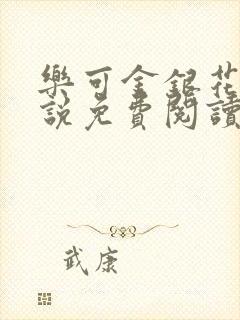 樂可金銀花
說免費閱讀
武康